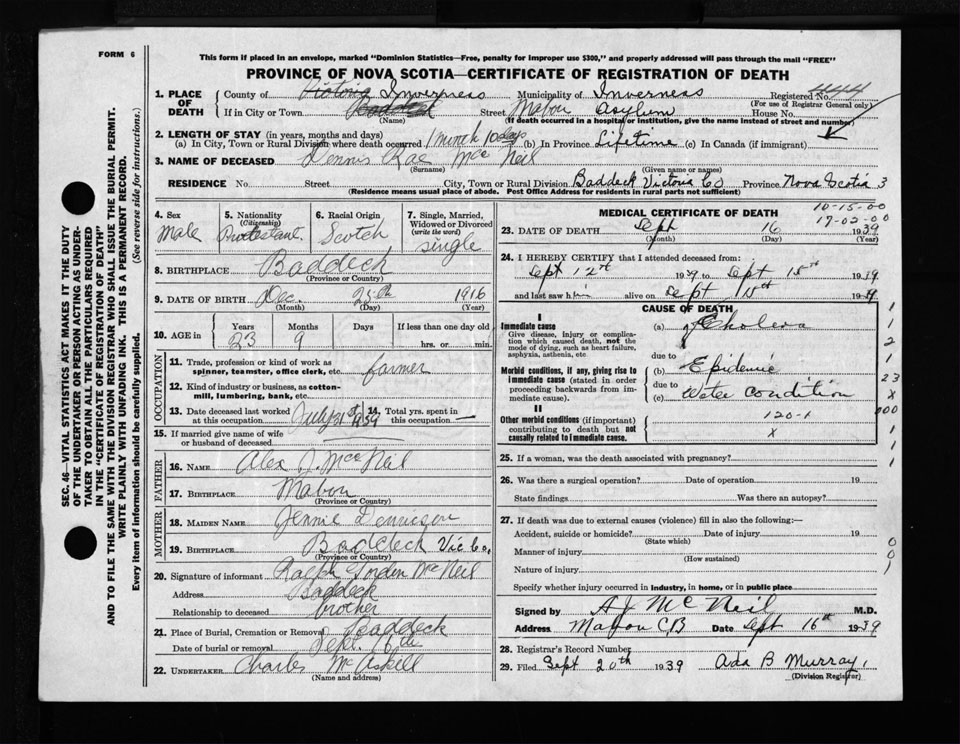 FORM 6
This form if placed in an envelope, marked "Dominion Statistics—Free, penalty for improper use $300," and properly addressed will pass through the mail "FREE"
PROVINCE OF NOVA SCOTIA—CERTIFICATE OF REGISTRATION OF DEATH
SEC. 46—VITAL STATISTICS ACT MAKES IT THE DUTY
OF THE UNDERTAKER OR PERSON ACTING AS UNDER-
TAKER TO OBTAIN ALL THE PARTICULARS REQUIRED
IN THE "CERTIFICATE OF REGISTRATION OF DEATH"
AND TO FILE THE SAME WITH THE DIVISION REGISTRAR WHO SHALL ISSUE THE BURIAL PERMIT.
WRITE PLAINLY WITH UNFADING INK. THIS IS A PERMANENT RECORD.
Every item of information should be carefully supplied. (See reverse side for instructions.)
1. PLACE OF DEATH County of Victoria Inverness Municipality of Inverness Registered No. 444
(For use of Registrar General only)
If in City or Town Baddeck Street Mabou Asylum House No.
(Name) (If death occurred in a hospital or institution, give the name instead of street and number)
2. LENGTH OF STAY (in years, months and days)
(a) In City, Town or Rural Division where death occurred 1 month 10 days (b) In Province Lifetime (c) In Canada (if immigrant)
3. NAME OF DECEASED Dennis Rae McNeil
(Surname) (Given name or names)
RESIDENCE No. Street City, Town or Rural Division Baddeck Victoria Co Province Nova Scotia 3
(Residence means usual place of abode. Post Office Address for residents in rural parts not sufficient)
4. Sex Male
5. Nationality (Citizenship) Protestant
6. Racial Origin Scotch
7. Single, Married, Widowed or Divorced (write the word) single
8. BIRTHPLACE Baddeck
(Province or Country)
9. DATE OF BIRTH Dec. 25th 1916
(Month) (Day) (Year)
10. AGE in Years 23 Months 9 Days If less than one day old hrs. or min.
OCCUPATION
11. Trade, profession or kind of work as spinner, teamster, office clerk, etc. farmer
12. Kind of industry or business, as cotton-mill, lumbering, bank, etc.
13. Date deceased last worked at this occupation July 31st 1939 14. Total yrs. spent in this occupation —
15. If married give name of wife or husband of deceased
FATHER
16. NAME Alex J. McNeil
17. BIRTHPLACE Mabou
(Province or Country)
MOTHER
18. MAIDEN NAME Jennie
19. BIRTHPLACE Baddeck Vic Co.
(Province or Country)
20. Signature of informant Ralph Gorden McNeil
Address Baddeck
Relationship to deceased brother
21. Place of Burial, Cremation or Removal Baddeck
Date of burial or removal Sept. 16th
22. UNDERTAKER Charles McAskell
(Name and address)
MEDICAL CERTIFICATE OF DEATH
10-15-00
17-02-00
23. DATE OF DEATH Sept 16 1939
(Month) (Day) (Year)
24. I HEREBY CERTIFY that I attended deceased from:
Sept 12th 1939 to Sept 15th 1939
and last saw him alive on Sept 15th 1939
CAUSE OF DEATH
I
Immediate cause (a) Cholera
Give disease, injury or complication which caused death, not the mode of dying, such as heart failure, asphyxia, asthenia, etc
due to
Morbid conditions, if any, giving rise to immediate cause (stated in order proceeding backwards from immediate cause). (b) Epidemic
due to
(c) Water Condition
II
Other morbid conditions (if important) contributing to death but not causally related to immediate cause.
120-1
x
1
1
2
1
23
x
000
1
1
1
25. If a woman, was the death associated with pregnancy?
26. Was there a surgical operation? Date of operation 19
State findings Was there an autopsy?
27. If death was due to external causes (violence) fill in also the following:—
Accident, suicide or homicide? Date of injury 19
(State which)
Manner of injury
(How sustained)
Nature of injury
0
0
1
Specify whether injury occurred in industry, in home, or in public place
Signed by A J McNeil M.D.
Address Mabou CB Date Sept 16th 1939
28. Registrar's Record Number
29. Filed Sept 20th 1939 Ada B Murray,
(Division Registrar)